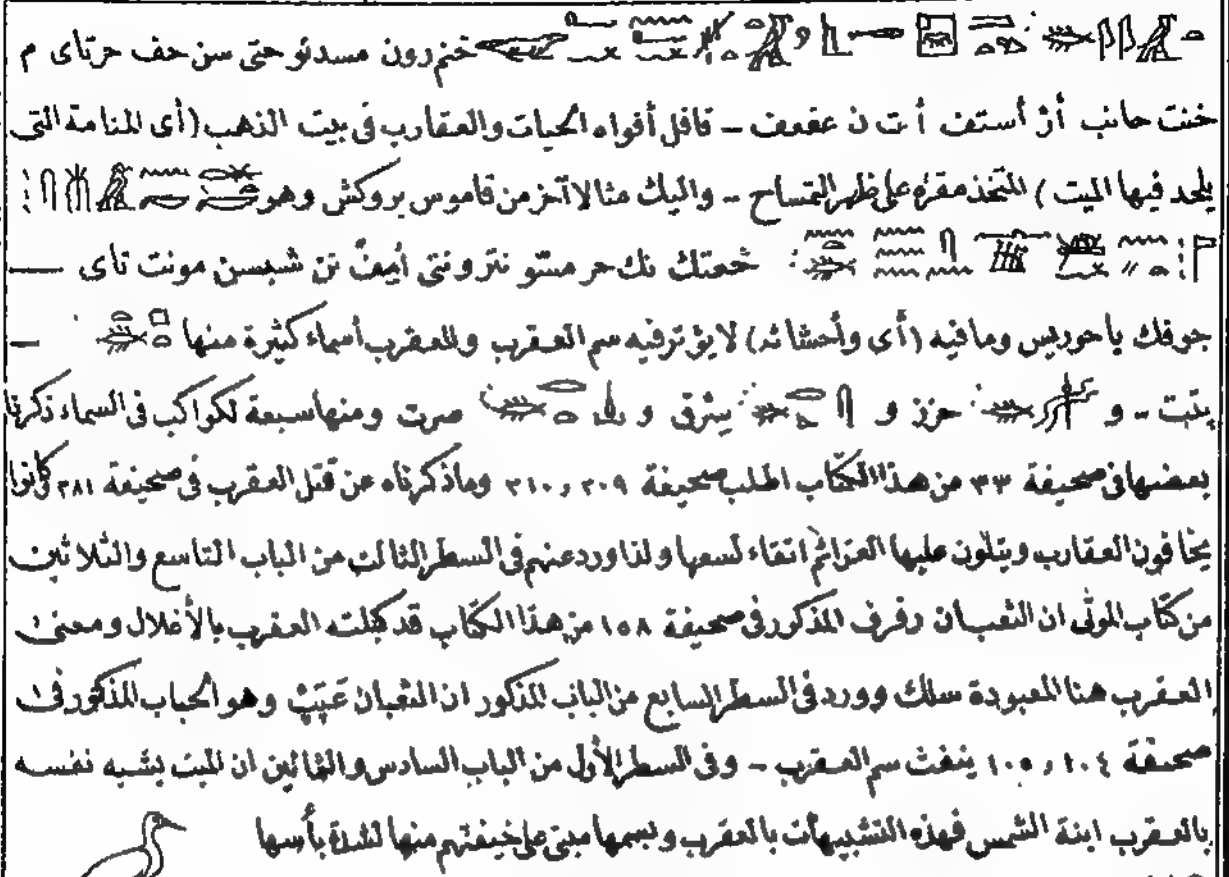 خنم رون مسدئو حتى سن حف حرتاى م
خنت حانب أر أستف أ ت ن عقعف - قافل أفواه الحيات والعقارب فى بيت الذهب (أى المنامة التى
يلحد فيها الميت) المتخذ مقره على ظهر التمساح - واليك مثالا آخر من قاموس بروكش وهو
خعتك نك حر مستو نترونتى أيمف تن شبسن مونت تاى —
جوفك ياحوريس ومافيه (أى وأحشائه) لا يؤثر فيه سم العقرب وللعقرب أسماء كثيرة منها —
پتبت - و حرز و يترق و صرت ومنها سبعة لكواكب فى السماء ذكرنا
بعضها فى صحيفة ٣٣ من هذا الكتاب اطلب صحيفة ٢٠٩ و ٢١٠ وماذكرناه عن قتل العقرب فى صحيفة ٢٨١ كانوا
يخافون العقارب ويتلون عليها العزائم اتقاء لسعها ولذا ورد عنهم فى السطر الثالث من الباب التاسع والثلاثين
من كتاب الموتى ان الثعبان رفرف المذكور فى صحيفة ١٥٨ من هذا الكتاب قد كبلته العقرب بالأغلال ومعنى
العقرب هنا المعبودة سلك وورد فى السطر السابع من الباب المذكور ان الثعبان عبب وهو الحباب المذكور فى
صحيفة ١٠٤ و ١٠٥ ينفث سم العقرب - وفى السطر الأول من الباب السادس والثمانين ان الميت يشبه نفسه
بالعقرب ابنة الشمس فهذه التشبيهات بالعقرب وبسمها مبنى على خيفتهم منها لشدة بأسها